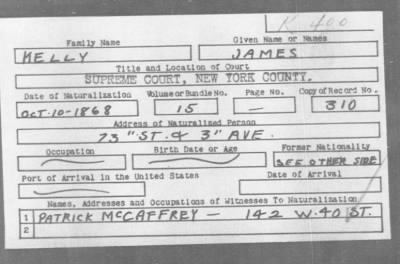 K 400
Family Name Given Name or Names
KELLY JAMES
Title and Location of Court
SUPREME COURT, NEW YORK COUNTY.
Date of Naturalization Volume or Bundle No. Page No. Copy of Record No.
OCT-10-1868 15 — 310
Address of Naturalized Person
73" ST. & 3" AVE.
Occupation Birth Date or Age Former Nationality
SEE OTHER SIDE
Port of Arrival in the United States Date of Arrival
Names, Addresses and Occupations of Witnesses To Naturalization
1 PATRICK McCAFFREY — 142 W. 40 ST.
2